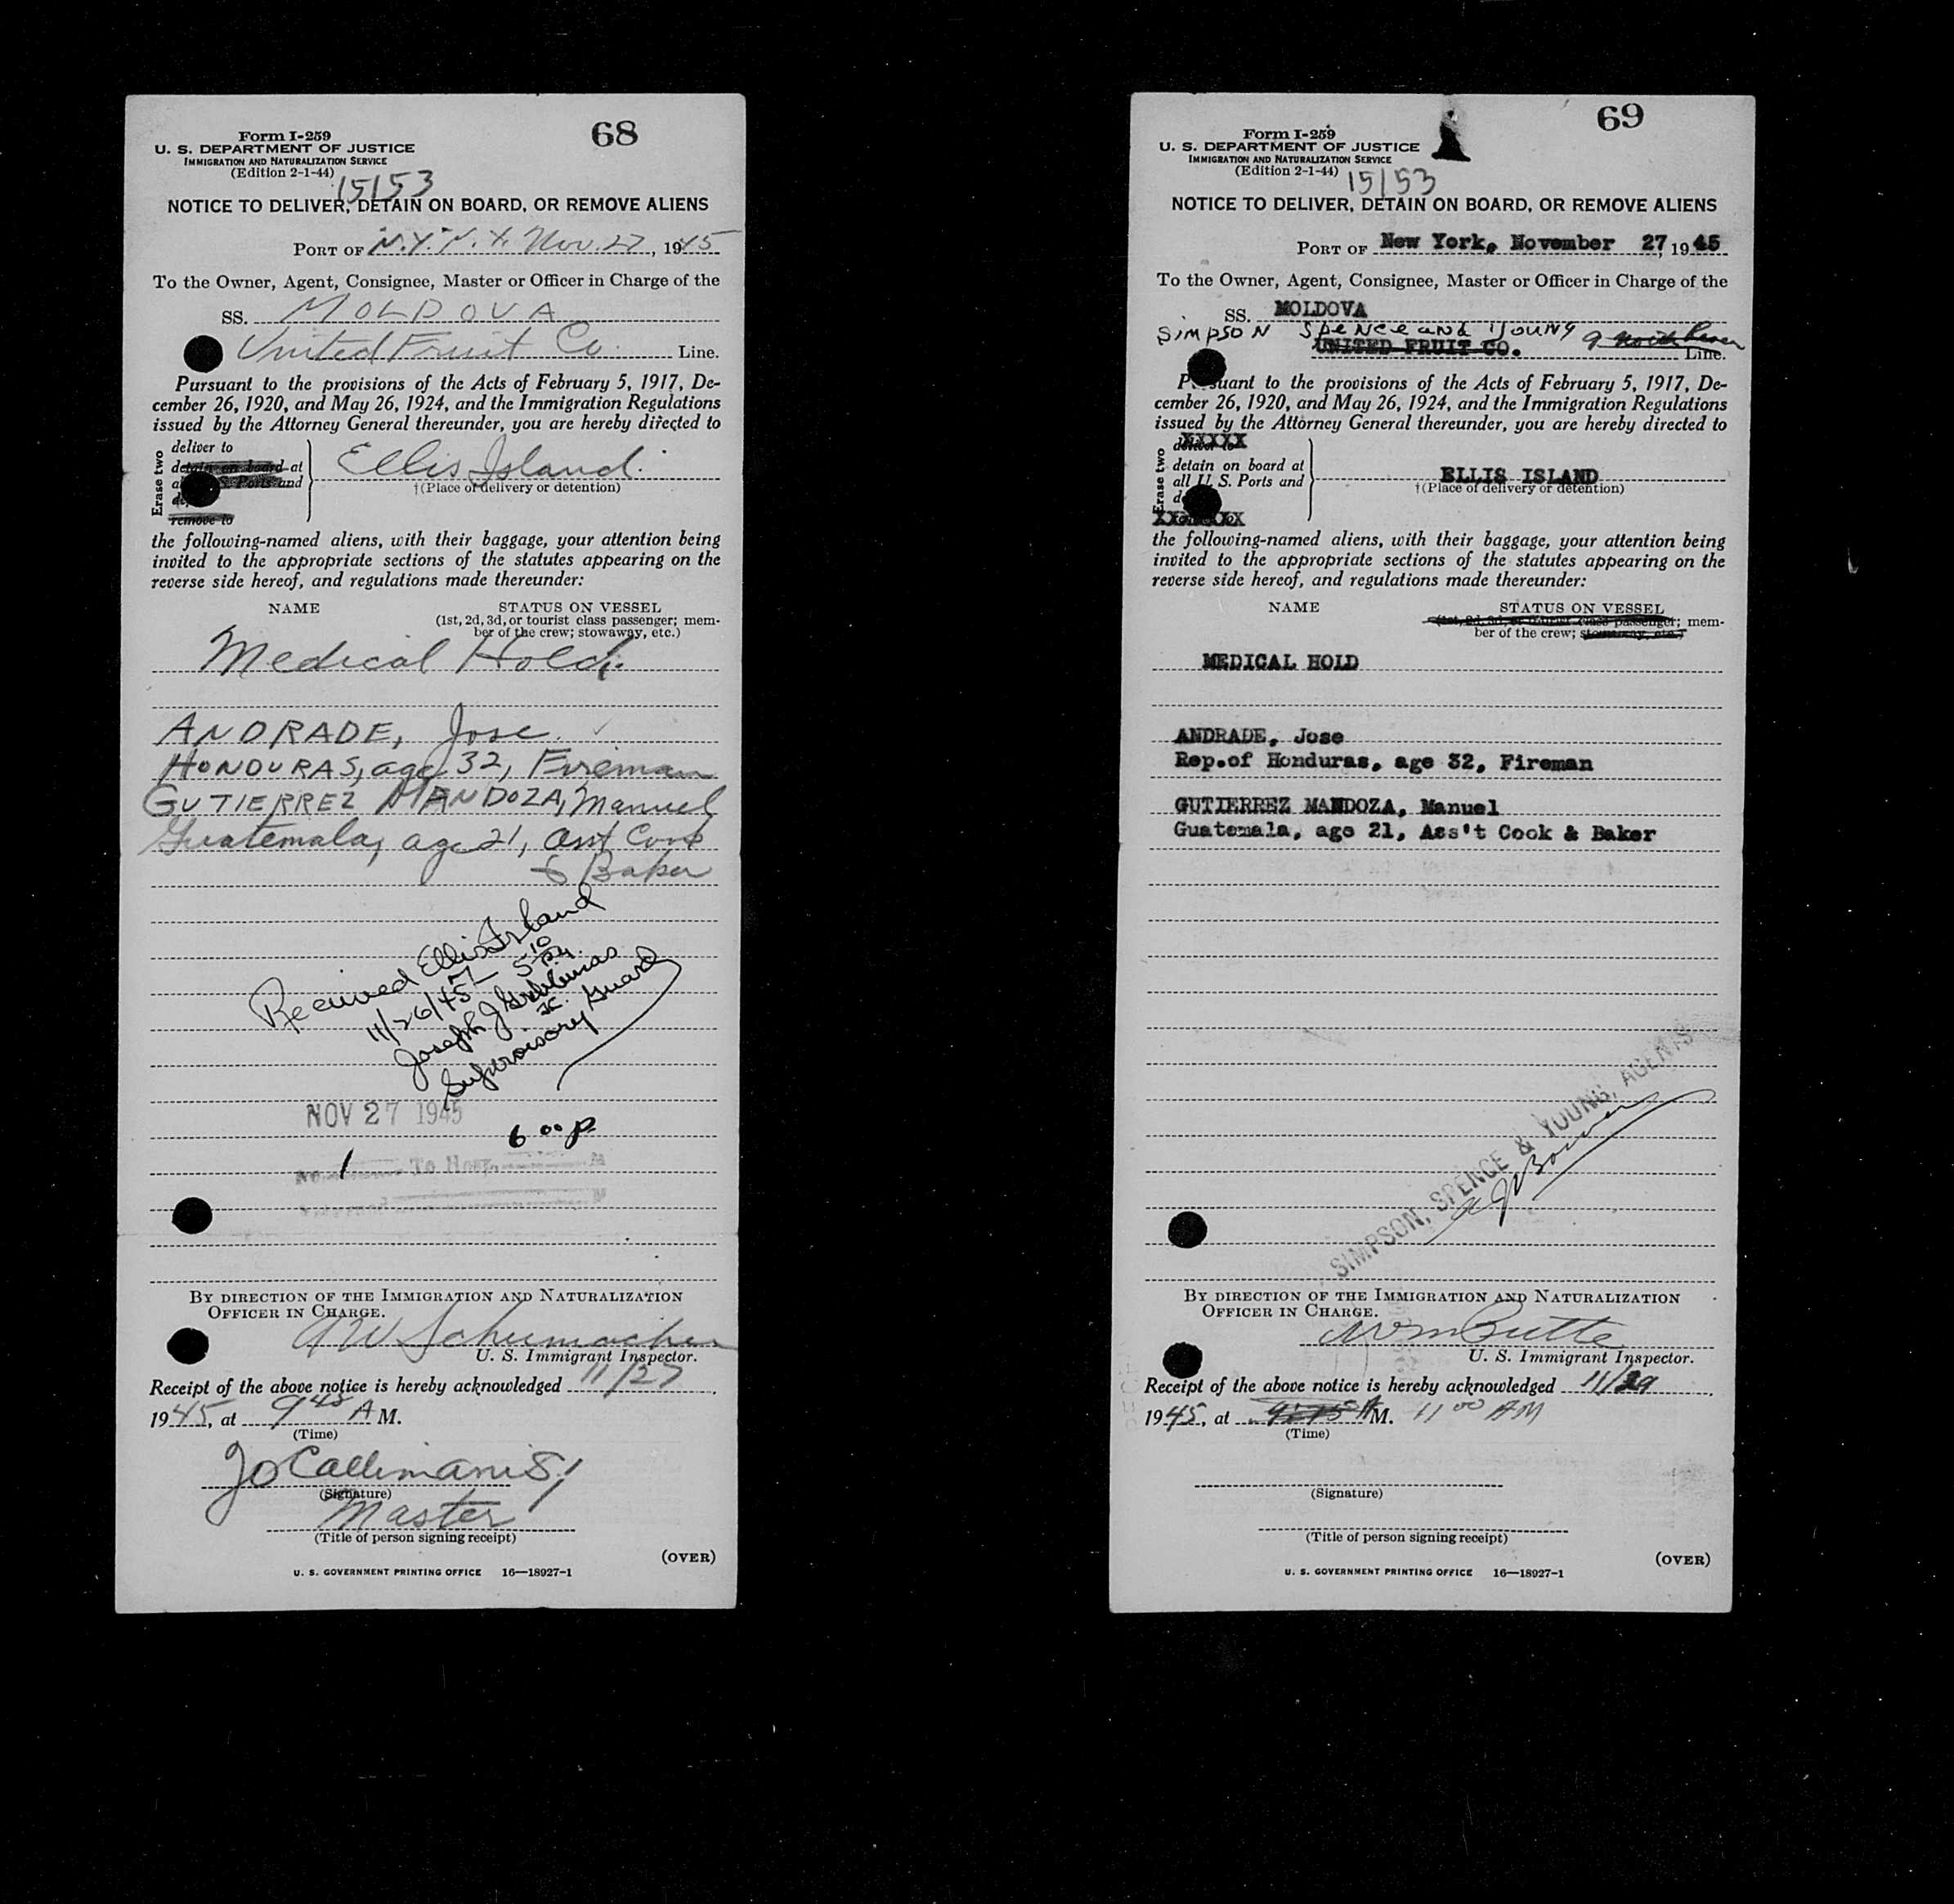 68
Form I-259
U. S. DEPARTMENT OF JUSTICE
IMMIGRATION AND NATURALIZATION SERVICE
(Edition 2-1-44)
15153
NOTICE TO DELIVER, DETAIN ON BOARD, OR REMOVE ALIENS
PORT OF N.Y. N.Y. Nov. 27, 1945
To the Owner, Agent, Consignee, Master or Officer in Charge of the
SS. MOLDOVA
United Fruit Co. Line.
Pursuant to the provisions of the Acts of February 5, 1917, De-
cember 26, 1920, and May 26, 1924, and the Immigration Regulations
issued by the Attorney General thereunder, you are hereby directed to
Erase two
deliver to
detain on board at
S. Ports and
remove to
Ellis Island.
†(Place of delivery or detention)
the following-named aliens, with their baggage, your attention being
invited to the appropriate sections of the statutes appearing on the
reverse side hereof, and regulations made thereunder:
NAME STATUS ON VESSEL
(1st, 2d, 3d, or tourist class passenger; mem-
ber of the crew; stowaway, etc.)
Medical Hold.
ANDRADE, Jose
HONDURAS, age 32, Fireman
GUTIERREZ MANDOZA, Manuel
Guatemala, age 21, Asst Cook
& Baker
Received Ellis Island
11/26/45 5 10
Joseph J
Supervisory Guard
NOV 27 1945
6 00 p
1 To Hosp.
BY DIRECTION OF THE IMMIGRATION AND NATURALIZATION
OFFICER IN CHARGE.
A W Schumacher
U. S. Immigrant Inspector.
Receipt of the above notice is hereby acknowledged 11/27
1945, at 9 45 A M.
(Time)
Jo Callimanis
(Signature)
Master
(Title of person signing receipt)
(OVER)
U. S. GOVERNMENT PRINTING OFFICE 16—18927-1
69
Form I-259
U. S. DEPARTMENT OF JUSTICE
IMMIGRATION AND NATURALIZATION SERVICE
(Edition 2-1-44)
15153
NOTICE TO DELIVER, DETAIN ON BOARD, OR REMOVE ALIENS
PORT OF New York, November 27, 1945
To the Owner, Agent, Consignee, Master or Officer in Charge of the
SS. MOLDOVA
Simpson Spence and Young 9 North River
UNITED FRUIT CO. Line.
Pursuant to the provisions of the Acts of February 5, 1917, De-
cember 26, 1920, and May 26, 1924, and the Immigration Regulations
issued by the Attorney General thereunder, you are hereby directed to
Erase two
deliver to
detain on board at
all U. S. Ports and
ELLIS ISLAND
†(Place of delivery or detention)
the following-named aliens, with their baggage, your attention being
invited to the appropriate sections of the statutes appearing on the
reverse side hereof, and regulations made thereunder:
NAME STATUS ON VESSEL
(1st, 2d, 3d, or tourist class passenger; mem-
ber of the crew; stowaway, etc.)
MEDICAL HOLD
ANDRADE, Jose
Rep.of Honduras, age 32, Fireman
GUTIERREZ MANDOZA, Manuel
Guatemala, age 21, Ass't Cook & Baker
SIMPSON, SPENCE & YOUNG, AGENTS
BY DIRECTION OF THE IMMIGRATION AND NATURALIZATION
OFFICER IN CHARGE.
Wm Butte
U. S. Immigrant Inspector.
Receipt of the above notice is hereby acknowledged 11/29
1945, at 9:45 A M. 11 00 AM
(Time)
(Signature)
(Title of person signing receipt)
(OVER)
U. S. GOVERNMENT PRINTING OFFICE 16—18927-1